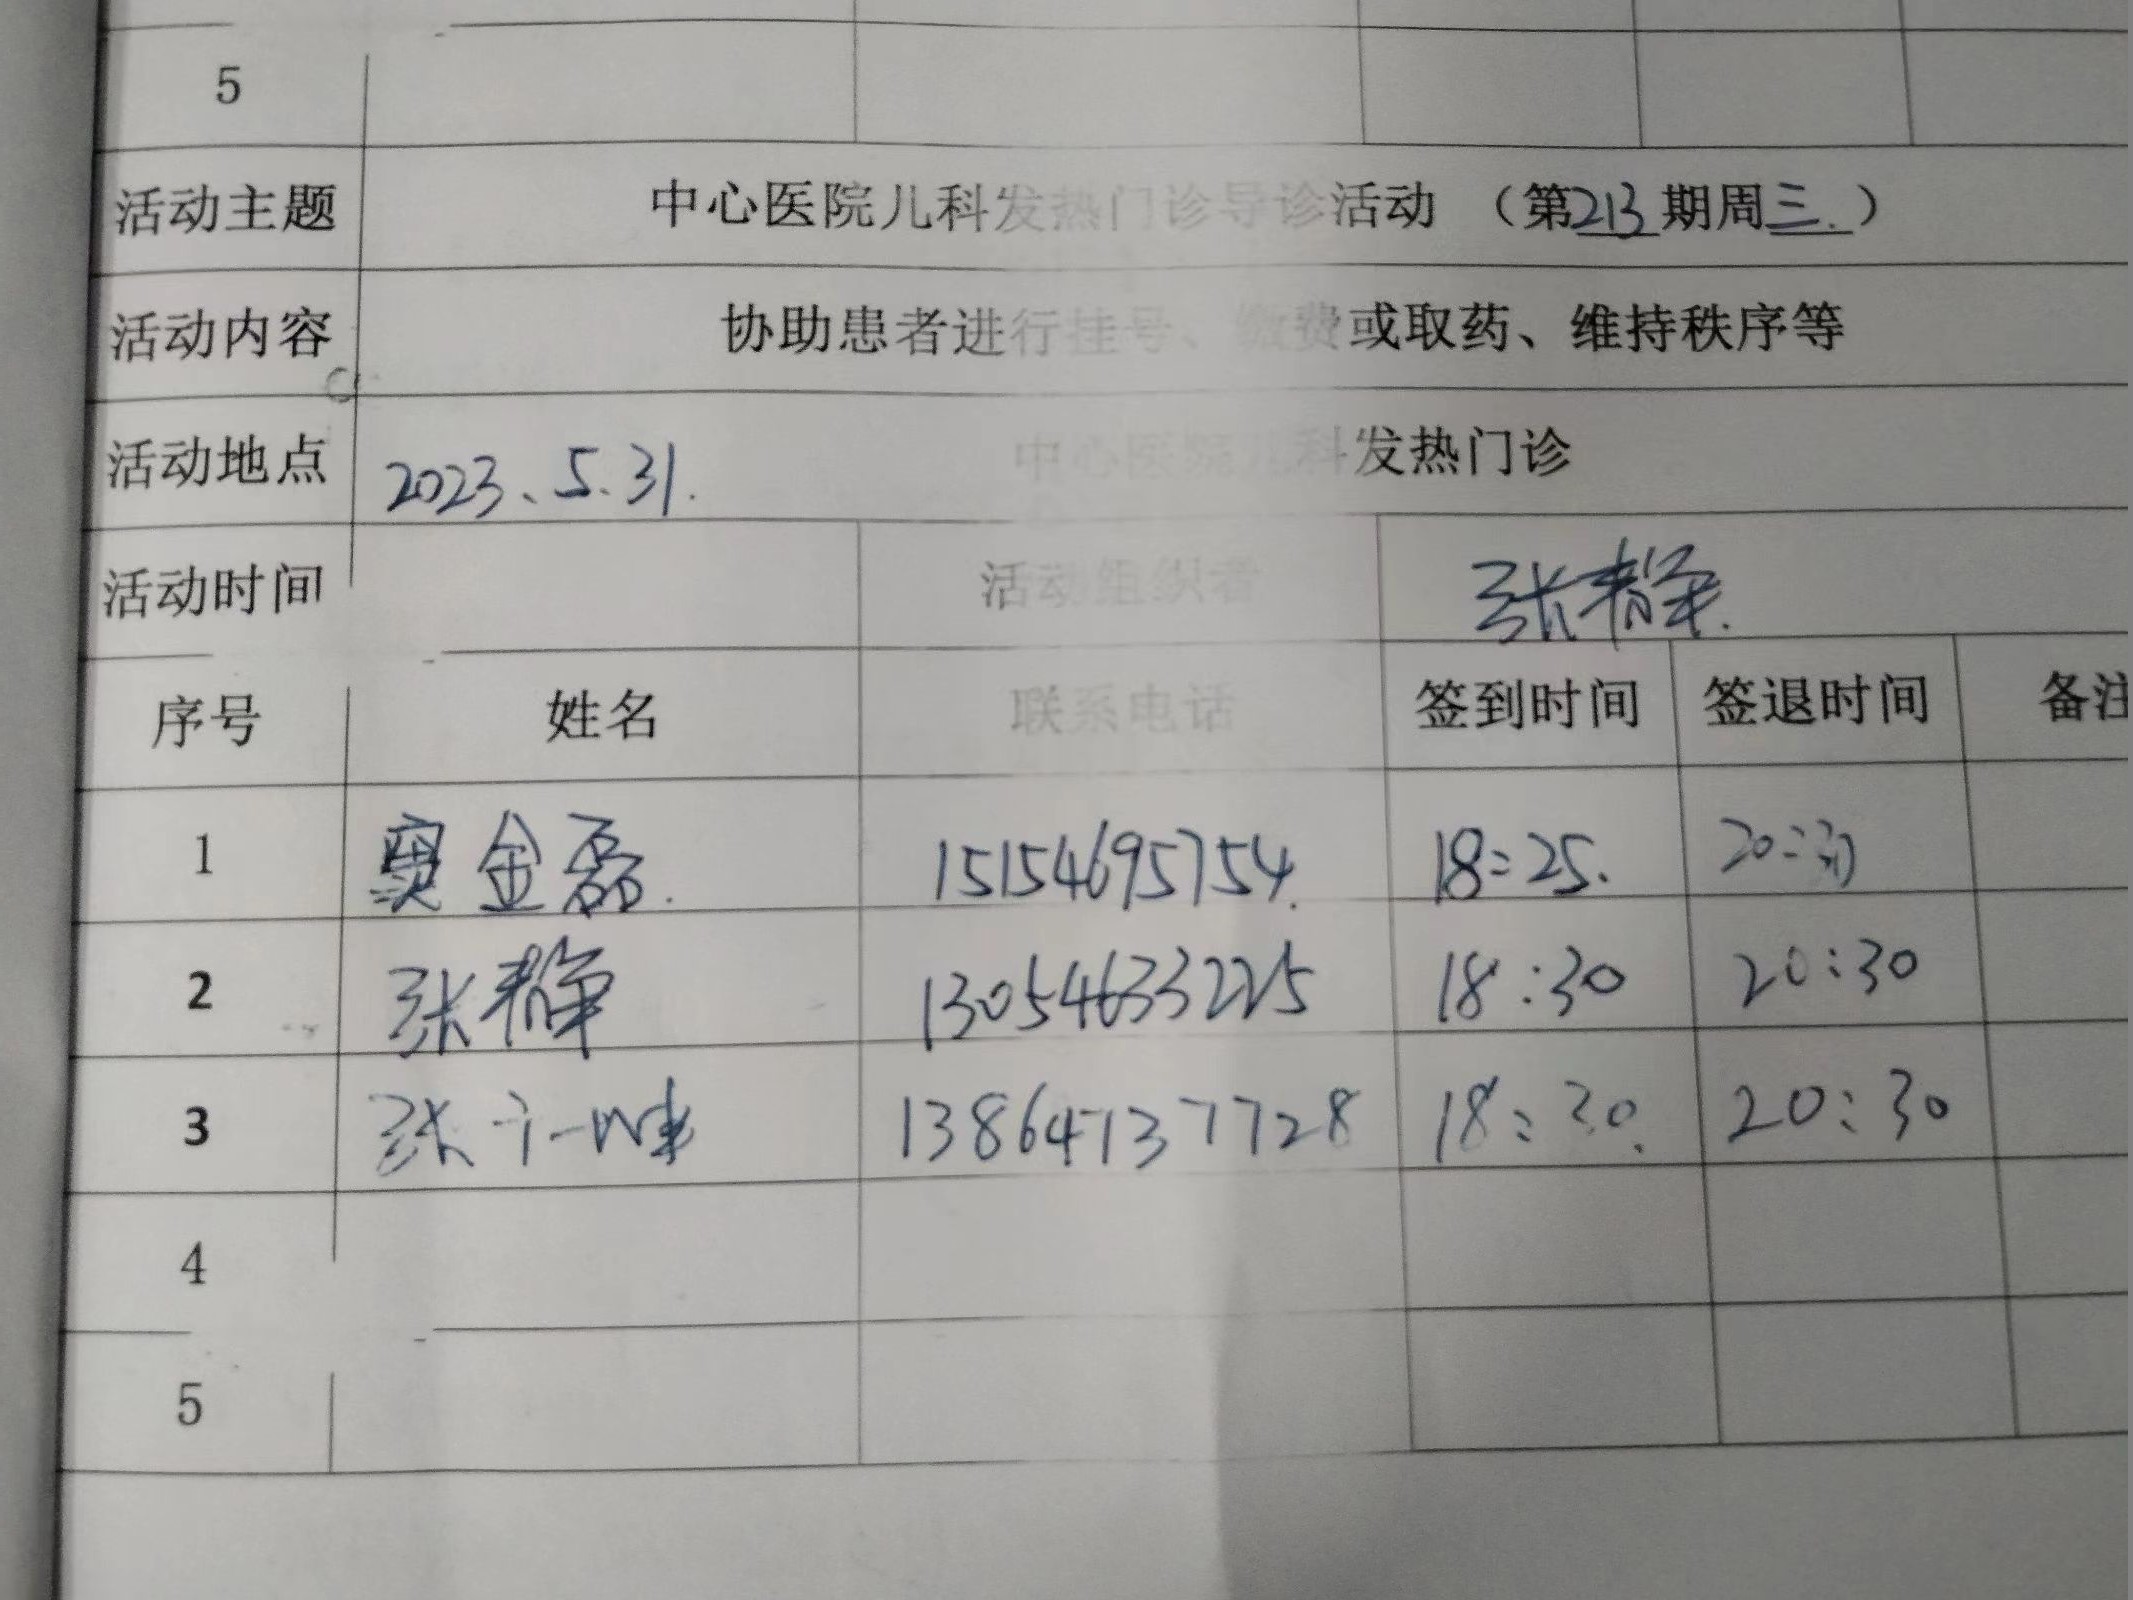 5
活动主题 中心医院儿科发热门诊导诊活动 （第213期周三.）
活动内容 协助患者进行挂号、缴费或取药、维持秩序等
活动地点 中心医院儿科发热门诊
2023.5.31.
活动时间 活动组织者 张静.
序号 姓名 联系电话 签到时间 签退时间 备注
1 窦金磊. 15154695754. 18:25. 20:30
2 张静 13054633225 18:30 20:30
3 张 13864737728 18:30. 20:30
4
5